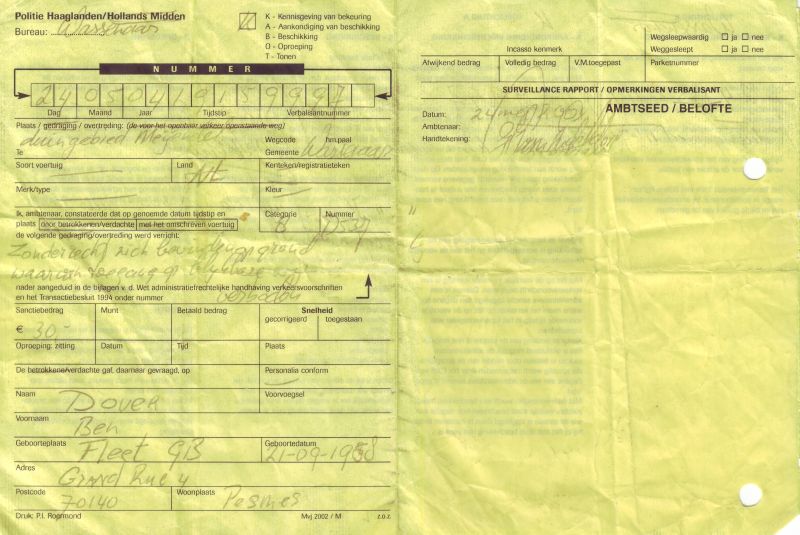 Politie Haaglanden/Hollands Midden
Bureau: Wassenaar
K - Kennisgeving van bekeuring
A - Aankondiging van beschikking
B - Beschikking
O - Oproeping
T - Tonen
NUMMER
Dag Maand Jaar Tijdstip Verbalisantnummer
Plaats / gedraging / overtreding: (de voor het openbaar verkeer openstaande weg)
duingebied
Wegcode hm.paal
Te
Gemeente
Soort voertuig
Land
NL
Kenteken/registratieteken
Merk/type
Kleur
Ik, ambtenaar, constateerde dat op genoemde datum tijdstip en
plaats door betrokkene/verdachte met het omschreven voertuig
de volgende gedraging/overtreding werd verricht:
Categorie
Nummer
D537
Zonder recht zich bevinden op grond
waarvan toegang op blijkbare wijze
verboden
nader aangeduid in de bijlagen v. d. Wet administratiefrechtelijke handhaving verkeersvoorschriften
en het Transactiebesluit 1994 onder nummer
Sanctiebedrag
€ 30,-
Munt
Betaald bedrag
Snelheid
gecorrigeerd toegestaan
Oproeping: zitting
Datum
Tijd
Plaats
De betrokkene/verdachte gaf, daarnaar gevraagd, op
Personalia conform
Naam
Dover
Voorvoegsel
Voornaam
Ben
Geboorteplaats
Fleet GB
Geboortedatum
21-09-1968
Adres
Grand Rue 4
Postcode
70140
Woonplaats
Pesmes
Druk: P.I. Roermond
Mvj 2002 / M
z.o.z.
Incasso kenmerk
Wegsleepwaardig ja nee
Weggesleept ja nee
Afwijkend bedrag
Volledig bedrag
V.M.toegepast
Parketnummer
SURVEILLANCE RAPPORT / OPMERKINGEN VERBALISANT
AMBTSEED / BELOFTE
Datum:
Ambtenaar:
Handtekening: